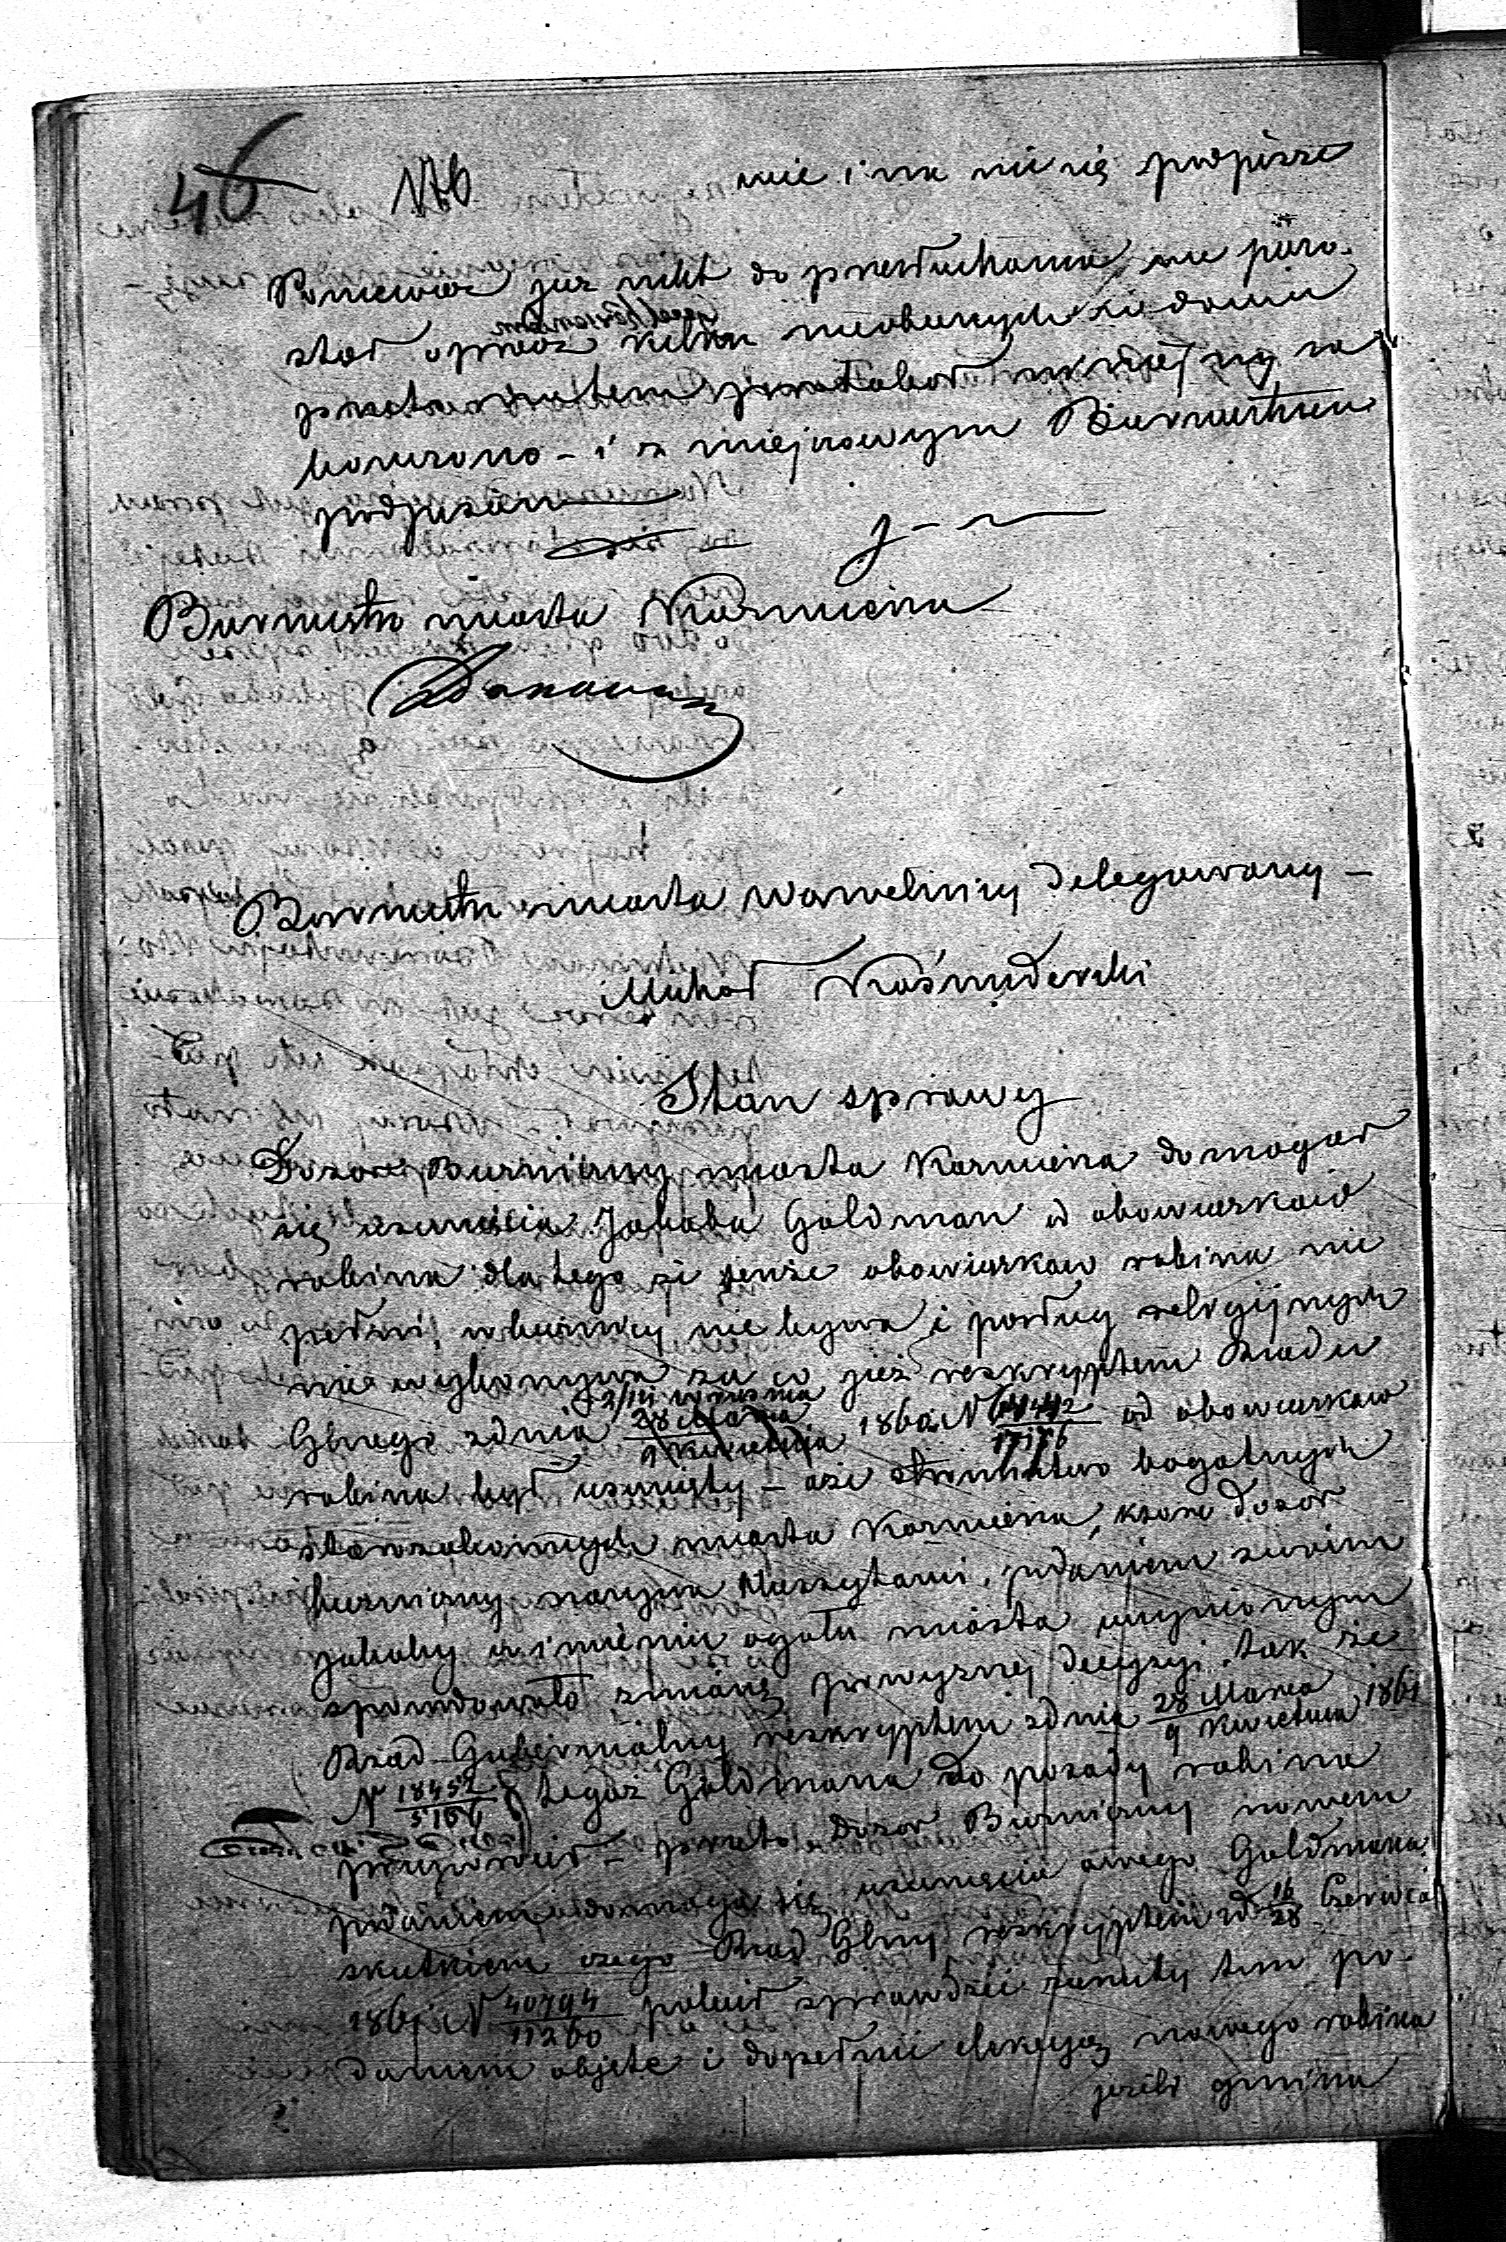 46 176
nie i na nie się podpisze
Ponieważ już nikt do przesłuchania nie pozo-
stał oprócz kilku nieobecnych w domu
przeto na tem protokół niniejszy za
kończono – i z miejscowym Burmistrzem
podpisano
Burmistrz miasta Kozmieina
Burmistrz miasta Wąwelnicy delegowany –
Michał Koźmiderski
Stan sprawy
Dozór Bużniczny miasta Kozmieina domagał
się usunięcia Jakoba Goldman od obowiązków
rabina dla tego że tenże obowiązków rabina nie
pełni, w bużnicy nie bywa i posług religijnych
nie wykonywa za co już reskryptem Rządu
Gbnego z dnia 2/14 września 28 Marca 9 Kwietnia 1860 N 64442 17156 od obowiązków
rabina był usunięty – aże stronnictwo bogatych
starozakonnych miasta Kozmieina, które Dozór
bużniczny nazywa Hussytami, podaniem swoim
jakoby w imieniu ogółu miasta uczynionym
spowodowało zmianę powyższej decyzyi, tak że
Rząd Gubernialny reskryptem z dnia 28 Marca 9 Kwietnia 1861
N 18452 5166 tegoż Goldmana do posady rabina
przywrócił – przeto Dozór Bużniczny nowem
podaniem domaga się usunięcia owego Goldmana
skutkiem czego Rząd Gbny reskryptem z d 16 28 Czerwca
1861 N 40794 11260 polecił sprawdzić zarzuty tem po-
daniem objęte i dopełnić elekcyą nowego rabina
jeżeli gmina